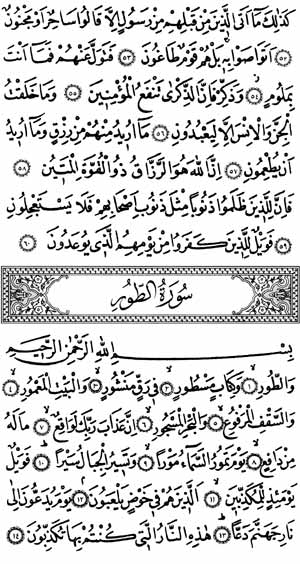 كَذٰلِكَ مَا أَتَى الَّذِينَ مِنْ قَبْلِهِمْ مِنْ رَسُولٍ إِلَّا قَالُوا سَاحِرٌ أَوْ مَجْنُونٌ
﴿٥٢﴾ أَتَوَاصَوْا بِهِ بَلْ هُمْ قَوْمٌ طَاغُونَ ﴿٥٣﴾ فَتَوَلَّ عَنْهُمْ فَمَا أَنْتَ
بِمَلُومٍ ﴿٥٤﴾ وَذَكِّرْ فَإِنَّ الذِّكْرَىٰ تَنْفَعُ الْمُؤْمِنِينَ ﴿٥٥﴾ وَمَا خَلَقْتُ
الْجِنَّ وَالْإِنْسَ إِلَّا لِيَعْبُدُونِ ﴿٥٦﴾ مَا أُرِيدُ مِنْهُمْ مِنْ رِزْقٍ وَمَا أُرِيدُ
أَنْ يُطْعِمُونِ ﴿٥٧﴾ إِنَّ اللَّهَ هُوَ الرَّزَّاقُ ذُو الْقُوَّةِ الْمَتِينُ ﴿٥٨﴾
فَإِنَّ لِلَّذِينَ ظَلَمُوا ذَنُوبًا مِثْلَ ذَنُوبِ أَصْحَابِهِمْ فَلَا يَسْتَعْجِلُونِ
﴿٥٩﴾ فَوَيْلٌ لِلَّذِينَ كَفَرُوا مِنْ يَوْمِهِمُ الَّذِي يُوعَدُونَ ﴿٦٠﴾
سُورَةُ الطُّورِ
بِسْمِ اللَّهِ الرَّحْمٰنِ الرَّحِيمِ
وَالطُّورِ ﴿١﴾ وَكِتَابٍ مَسْطُورٍ ﴿٢﴾ فِي رَقٍّ مَنْشُورٍ ﴿٣﴾ وَالْبَيْتِ الْمَعْمُورِ ﴿٤﴾
وَالسَّقْفِ الْمَرْفُوعِ ﴿٥﴾ وَالْبَحْرِ الْمَسْجُورِ ﴿٦﴾ إِنَّ عَذَابَ رَبِّكَ لَوَاقِعٌ ﴿٧﴾ مَا لَهُ
مِنْ دَافِعٍ ﴿٨﴾ يَوْمَ تَمُورُ السَّمَاءُ مَوْرًا ﴿٩﴾ وَتَسِيرُ الْجِبَالُ سَيْرًا ﴿١٠﴾ فَوَيْلٌ
يَوْمَئِذٍ لِلْمُكَذِّبِينَ ﴿١١﴾ الَّذِينَ هُمْ فِي خَوْضٍ يَلْعَبُونَ ﴿١٢﴾ يَوْمَ يُدَعُّونَ إِلَىٰ
نَارِ جَهَنَّمَ دَعًّا ﴿١٣﴾ هٰذِهِ النَّارُ الَّتِي كُنْتُمْ بِهَا تُكَذِّبُونَ ﴿١٤﴾